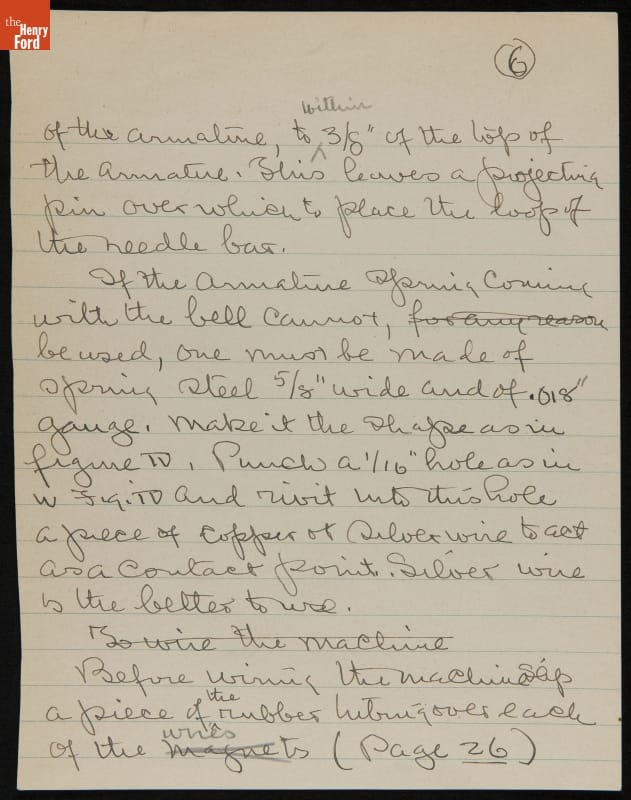 the
Henry
Ford
6
within
of the armature, to 3/8" of the top of
the armature. This leaves a projecting
pin over which to place the loop of
the needle bar.
If the armature spring coming
with the bell cannot, for any reason
be used, one must be made of
spring steel 5/8" wide and of .018"
gauge. Make it the shape as in
figure IV. Punch a 1/16" hole as in
W Fig. IV and rivit into this hole
a piece of copper or silver wire to act
as a contact point. Silver wire
is the better to use.
To wire the machine
Before wiring the machine slip
the
a piece of rubber tubing over each
wires
of the magnets (Page 26)